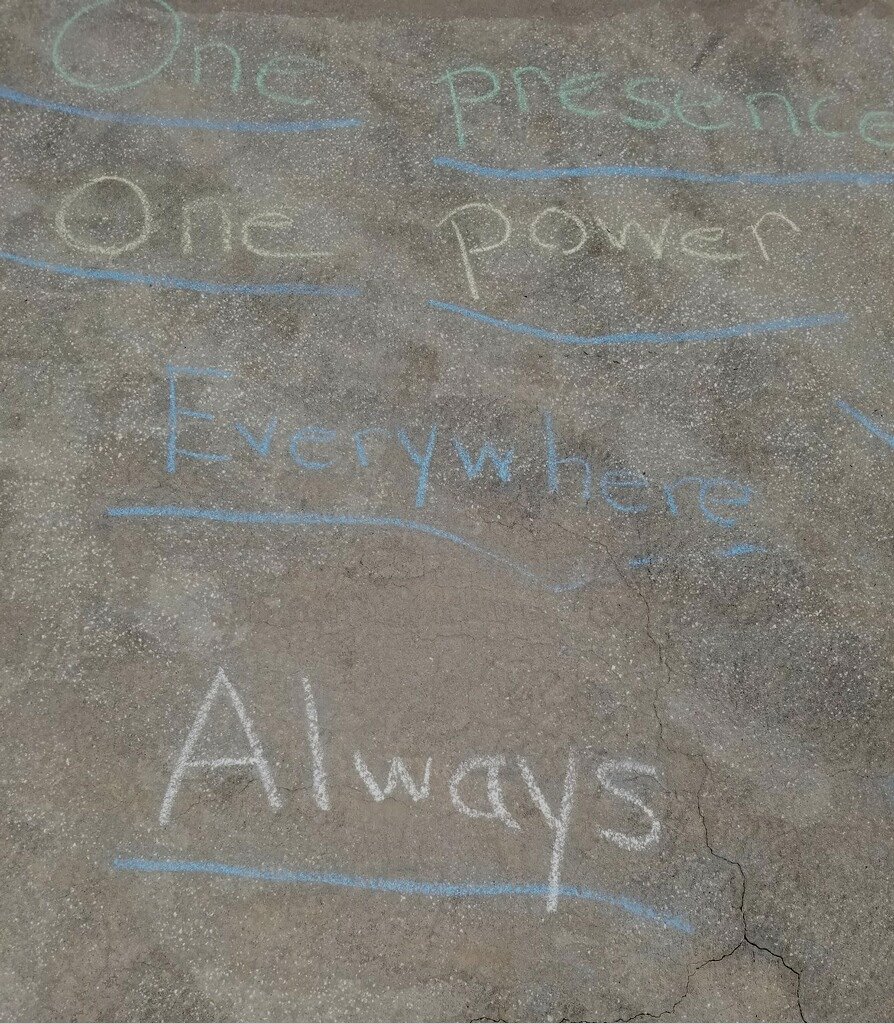 One presence
One power
Everywhere
Always